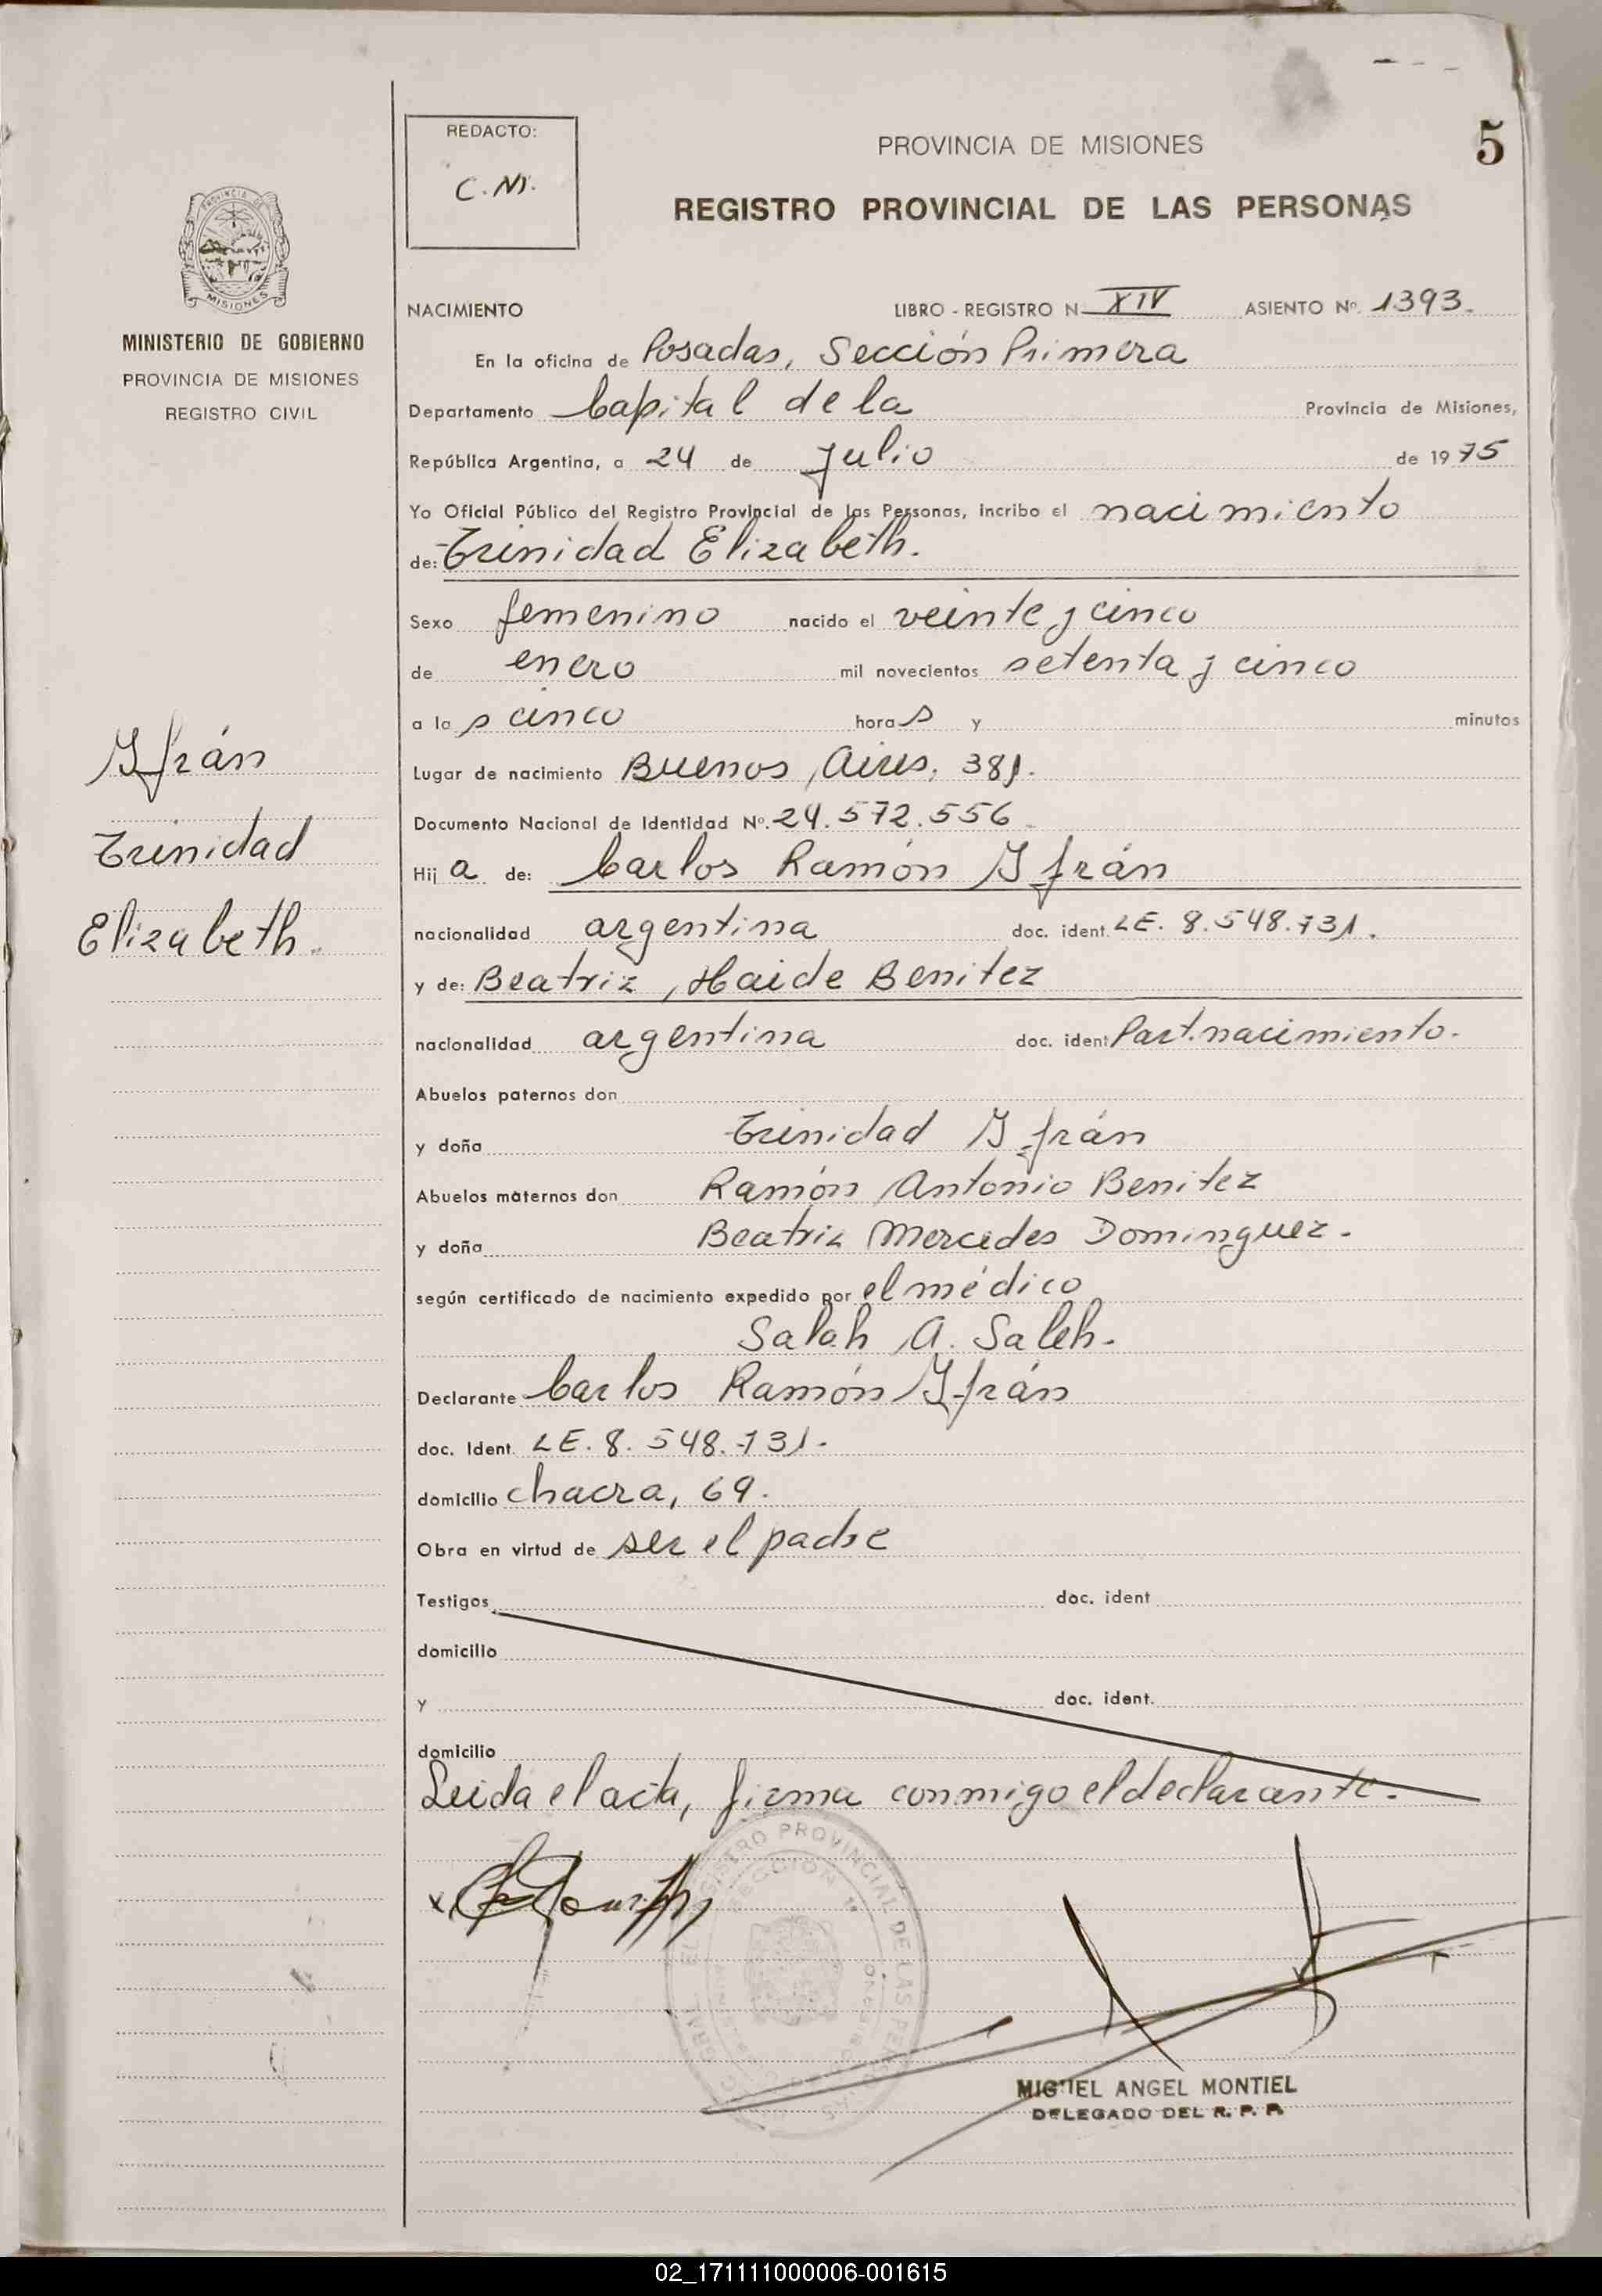 5
REDACTO:
C. M.
PROVINCIA DE MISIONES
REGISTRO PROVINCIAL DE LAS PERSONAS
PROVINCIA DE
MISIONES
MINISTERIO DE GOBIERNO
PROVINCIA DE MISIONES
REGISTRO CIVIL
Yfrán
Trinidad
Elizabeth.
NACIMIENTO LIBRO - REGISTRO N XIV ASIENTO Nº. 1393.
En la oficina de Posadas, Sección Primera
Departamento Capital de la Provincia de Misiones,
República Argentina, a 24 de Julio de 1975
Yo Oficial Público del Registro Provincial de las Personas, incribo el nacimiento
de: Trinidad Elizabeth.
Sexo femenino nacido el veinte y cinco
de enero mil novecientos setenta y cinco
a las cinco horas y minutos
Lugar de nacimiento Buenos Aires, 381.
Documento Nacional de Identidad Nº. 24.572.556
Hija de: Carlos Ramón Yfrán
nacionalidad argentina doc. ident. LE. 8.548.731.
y de: Beatriz Haide Benitez
nacionalidad argentina doc. ident Part. nacimiento.
Abuelos paternos don
y doña Trinidad Yfrán
Abuelos maternos don Ramón Antonio Benitez
y doña Beatriz Mercedes Dominguez.
según certificado de nacimiento expedido por el médico
Salah A. Saleh.
Declarante Carlos Ramón Yfrán
doc. Ident. LE. 8. 548. 731.
domicilio chacra, 69.
Obra en virtud de ser el padre
Testigos doc. ident
domicilio
y doc. ident.
domicilio
Leida el acta, firma conmigo el declarante.
REGISTRO PROVINCIAL DE LAS PERSONAS
SECCION 1ª
MIGUEL ANGEL MONTIEL
DELEGADO DEL R. P. P.
02_171111000006-001615